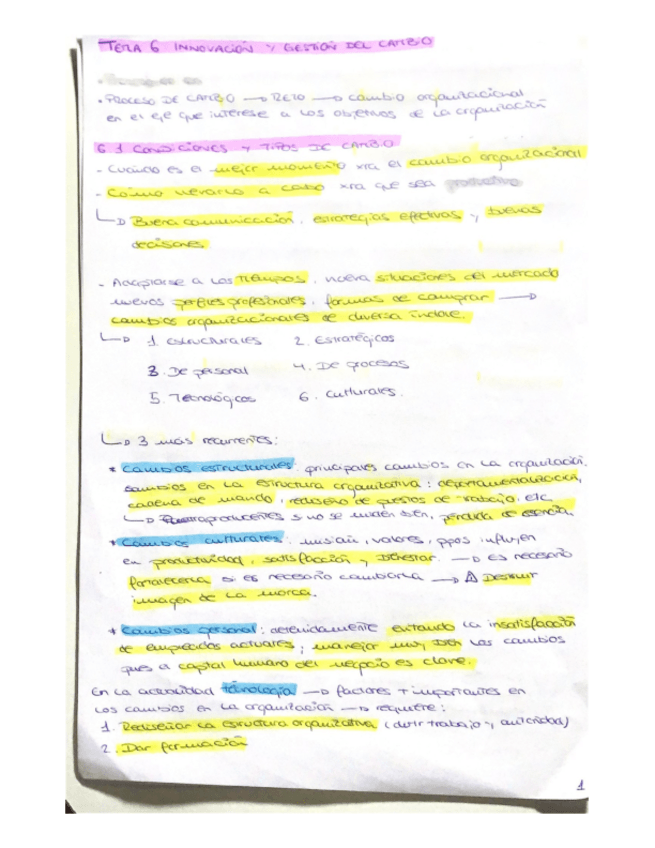 TEMA 6 INNOVACIÓN Y GESTIÓN DEL CAMBIO
• PROCESO DE CAMBIO → RETO → cambio organizacional
en el eje que interese a los objetivos de la organización
6.1 CONDICIONES Y TIPOS DE CAMBIO
- Cuándo es el mejor momento xra el cambio organizacional
- Cómo llevarlo a cabo xra que sea
↳ Buena comunicación, estrategias efectivas y buenas
decisiones
- Adaptarse a los tiempos, nueva situaciones del mercado
nuevos perfiles profesionales, formas de comprar →
cambios organizacionales de diversa índole.
↳ 1. estructurales 2. Estratégicos
3. De personal 4. De procesos
5. Tecnológicos 6. Culturales.
↳ 3 más recurrentes:
* Cambios estructurales: principales cambios en la organización.
cambios en la estructura organizativa: departamentalización,
cadena de mando, rediseño de puestos de trabajo, etc
↳ si no se miden bien, pérdida de esencia
* Cambios culturales: misión, valores, ppos influyen
en productividad, satisfacción y bienestar. → es necesario
fortalecerla si es necesario cambiarla → ⚠ Destruir
imagen de la marca.
* Cambios personal: detenidamente evitando la insatisfacción
de empleados actuales; manejar muy bien los cambios
pues el capital humano del negocio es clave.
En la actualidad tecnología → factores + importantes en
los cambios en la organización → requiere:
1. Rediseñar la estructura organizativa (divir trabajo y autoridad)
2. Dar formación
1